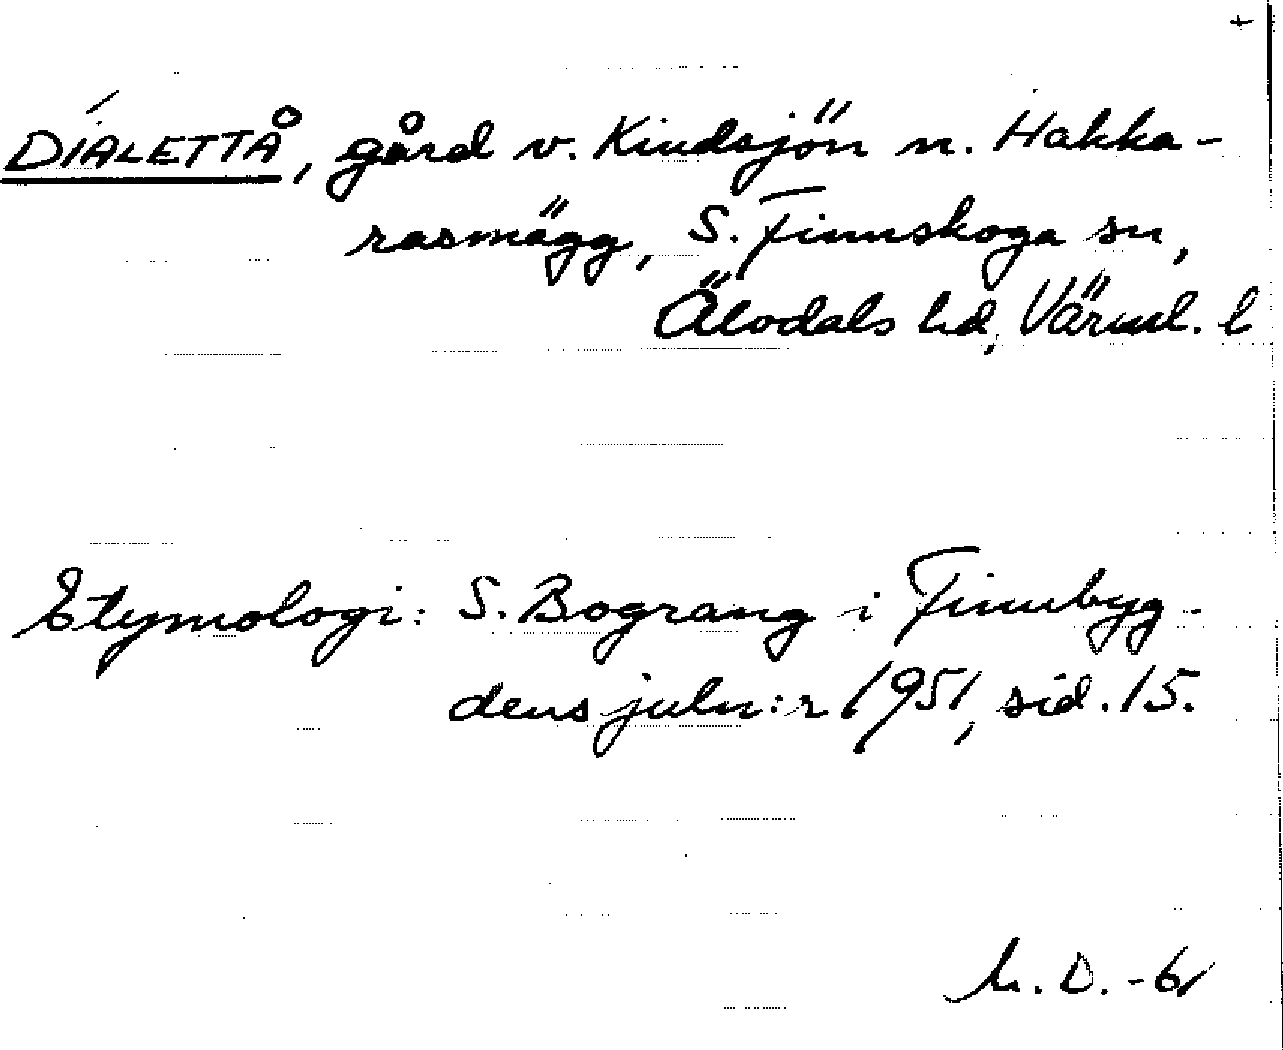 DÍALETTÅ, gård v. Kindsjön n. Hakka-
rasmägg, S. Finnskoga sn,
Älvdals hd, Värml. l
Etymologi: S. Bograng i Finnbyg-
dens juln:r 1951, sid. 15.
h. D. -61